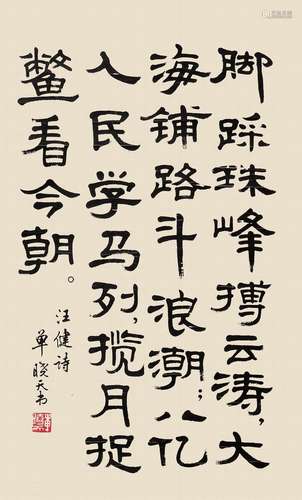 脚踩珠峰搏云涛，大
海铺路斗浪潮；八亿
人民学马列，揽月捉
鳖看今朝。
汪健诗
单晓天书